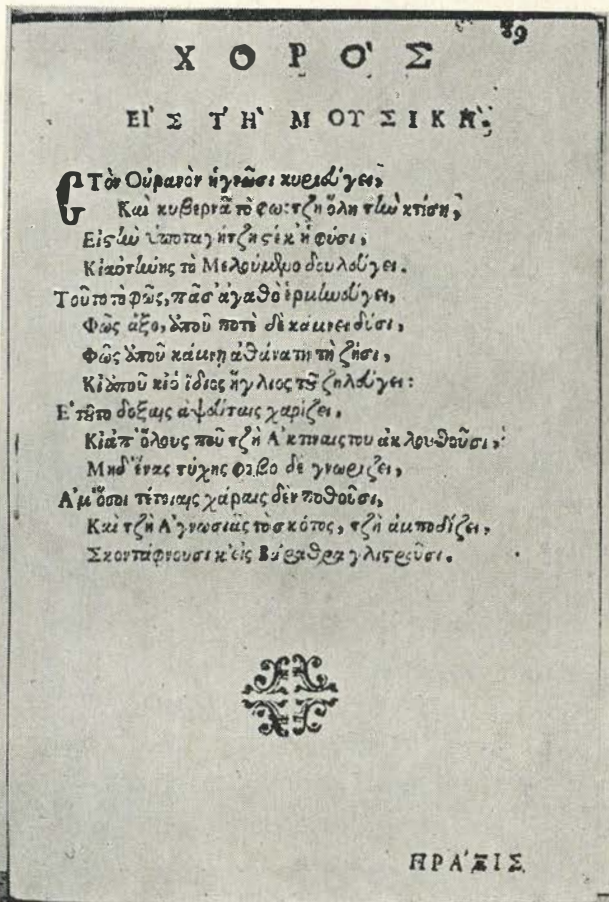 89
ΧΟΡΟ'Σ
ΕΙ'Σ ΤΗ' ΜΟΥΣΙΚΗ'.
ΣΤὸν Οὐρανὸν ἡ γνῶσι κυριεύγει,
Καὶ κυβερνᾶ τὸ φῶς τζῆ ὅλη τὴν κτίση,
Εἰς τὴν ὑποταγή τζης ἐκ' ἡ φύσι,
Κι τὸ Μελούμδρο δουλεύγει.
Τοῦτο τὸ φῶς, πᾶσ' ἀγαθὸ ἑρμηνεύγει,
Φῶς ἄξο, ὁποῦ ποτὲ δὲ κάμνει δύσι,
Φῶς ὁποῦ κάμνη ἀθάνατη τὴ ζήσι,
Κι ὁποῦ κι ὁ ἴδιος ἥγλιος τοῦ ζηλεύγει:
Ε'τοῦτο δόξαις ἀψεύταις χαρίζει,
Κι ἀπ' ὅλους ποῦ τζὴ Α'κτιναις του ἀκλουθοῦσι,
Μηδ' ἕνας τύχης φόβο δε γνωρίζει,
Α'μ' ὅσοι τέτοιαις χάραις δὲν ποθοῦσι,
Καὶ τζῆ Α'γνωσιᾶς τὸ σκότος, τζῆ ἀμποδίζει,
Σκοντάφνουσι κ' εἰς Βάραθρα γλιστροῦσι.
ΠΡΑ'ΞΙΣ